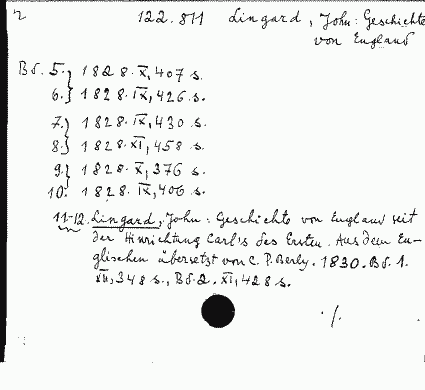 2 122.811 Lingard, John: Geschichte
von England
Bd. 5. 1828. IX, 407 s.
6. 1828. IX, 426 s.
7. 1828. IX, 430 s.
8. 1828. XI, 458 s.
9. 1828. X, 376 s.
10. 1828. IX, 406 s.
11-12. Lingard, John: Geschichte von England seit
der Hinrichtung Carl's des Ersten. Aus dem En-
glischen übersetzt von C. P. Berly. 1830. Bd. 1.
XII, 348 s., Bd. 2. XI, 428 s.
./.